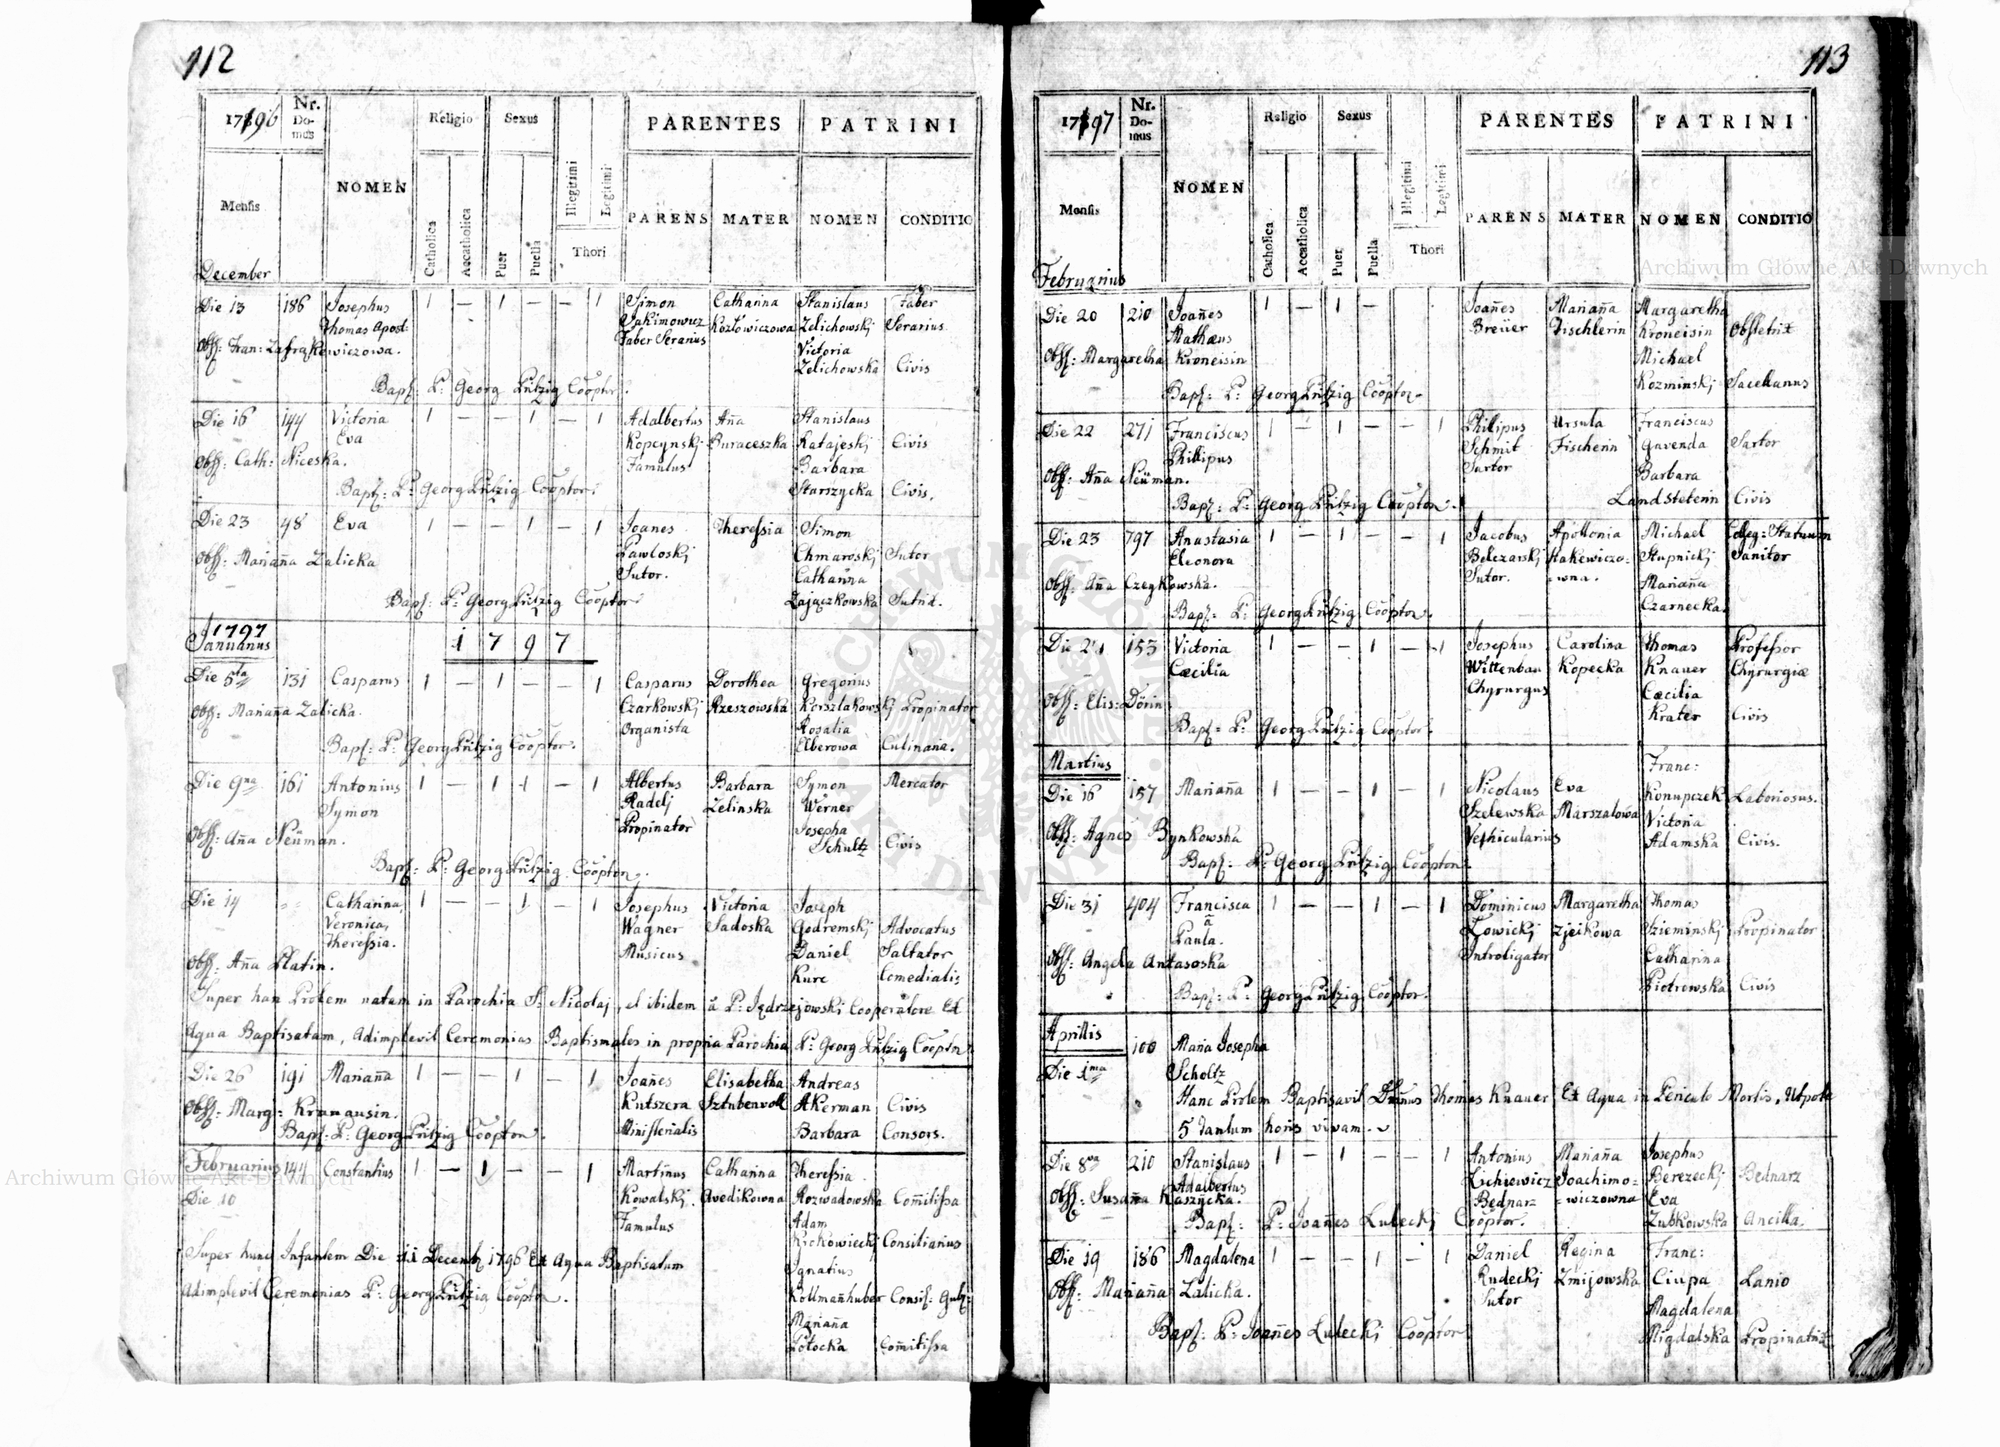 112
1796
Nr. Domus
NOMEN
Religio
Sexus
PARENTES
PATRINI
Mensis
Catholica
Accatholica
Puer
Puella
Illegitimi
Legitimi
Thori
PARENS
MATER
NOMEN
CONDITIO
December
Die 13 186 Josephus 1 — 1 — — 1 Simon Catharina Stanislaus Faber
Thomas Apost: Jakimowicz Kozłowiczowa Zelichowskj Serarius
Obst: Fran: Faber Seranus Victoria
Zelichowska Civis
Bapt: P: Georg Lützig Cooptor.
Die 16 144 Victoria 1 — — 1 — 1 Adalbertus Aña Stanislaus
Eva Kopcynskj Buraceszka Ratajeskj Civis
Obst: Cath: Niceska. Famulus Barbara
Bapt: P: Georg Lützig Cooptor. Starszycka Civis.
Die 23 48 Eva 1 — — 1 — 1 Joanes Theressia Simon
Obst: Mariaña Zalicka Pawloskj Chmaroskj Sutor
Sutor. Catharina
Bapt: P: Georg Lützig Cooptor Zajączkowska Sutrid.
1797
Januarius 1 7 9 7
Die 5ta 131 Casparus 1 — 1 — — 1 Casparus Dorothea Gregorius
Obst: Mariaña Zalicka. Czarkowskj Rzeszowska Korszlakowskj Propinator
Organista Rosalia
Bapt: P: Georg Lützig Cooptor. Elberowa Culinaria.
Die 9na 161 Antonius 1 — 1 1 — 1 Albertus Barbara Symon Mercator
Symon Radelj Zelinska Werner
Obst: Aña Neüman. Propinator Josepha
Schultz Civis
Bapt: P: Georg Lützig Cooptor.
Die 14 Catharina, 1 — — 1 — 1 Josephus Victoria Joseph
Veronica, Wagner Sadoska Godremskj Advocatus
Theressia. Musicus Daniel Saltator
Obst: Aña Platin. Kurc Comedialis
Super han Prolem natam in Parochia S: Nicolaj, et ibidem à P: Jędrzejowskj Cooperatore Ex
Aqua Baptisatam, Adimplevit Ceremonias Baptismales in propria Parochia P: Georg Lützig Cooptor
Die 26 191 Mariaña 1 — — 1 — 1 Joañes Elisabetha Andreas
Obst: Marg: Kutszera Sztubenvoll AKerman Civis
Bapt: P: Georg Lützig Cooptor. Ministerialis Barbara Consors.
Februarius 144 Constantius 1 — 1 — — 1 Martinus Catharina Theressia
Die 10 Kowalskj. Avedikowna Rozwadowska Comitissa
Famulus Adam
Consiliarius
Super hunc Infantem Die 11 Decemb 1796 Ex Aqua Baptisatum Ignatius
Adimplevit Ceremonias P: Georg Lützig Cooptor. Kollmañhuber Consil: Gub:
Mariaña
Potocka Comitissa
113
1797
Nr. Domus
NOMEN
Religio
Sexus
PARENTES
PATRINI
Mensis
Catholica
Accatholica
Puer
Puella
Illegitimi
Legitimi
Thori
PARENS
MATER
NOMEN
CONDITIO
Februarius
Die 20 210 Joañes 1 — 1 — Joañes Mariaña Margaretha
Mathæus Breüer Tischlerin Kroneisin Obstetrix
Obst: Margaretha Kroneisin Michael
Kozminskj Sacellanus
Bapt: P: Georg Lützig Cooptor
Die 22 271 Franciscus 1 — 1 — — 1 Philipus Ursula Franciscus
Philipus Schmit Fischerin Gavenda Sartor
Obst: Aña Neüman. Sartor Barbara
Bapt: P: Georg Lützig Cooptor. Landsteterin Civis
Die 23 797 Anastasia 1 — 1 — — 1 Jacobus Apollonia Michael Colleg: Statuum
Eleonora Belczarskj Hakewiczowna. Stupnickj Janitor
Obst: Aña Czeykowska. Sutor. Mariaña
Bapt: P: Georg Lützig Cooptor. Czarnecka.
Die 153 Victoria 1 — — 1 — 1 Josephus Carolina Thomas Professor
Cæcilia Wittenbau Kopecka Knauer Chyrurgiæ
Obst: Elis: Dörin Chyrurgus Cæcilia
Bapt: P: Georg Lützig Cooptor. Krater Civis
Martius
Die 16 157 Mariaña 1 — — 1 — 1 Nicolaus Eva Franc:
Szelewska Marszalowa Konupczek Laboriosus.
Obst: Agnes Bynkowska Vechicularius Victoria
Adamska Civis.
Bapt: P: Georg Lützig Cooptor
Die 31 404 Francisca 1 — — 1 — 1 Dominicus Margaretha Thomas
à Lowickj Zjeikowa Sziemiñskj Propinator
Paula. Introligator Catharina
Obst: Angela Antasoska Piotrowska Civis
Bapt: P: Georg Lützig Cooptor.
Aprillis
100 Maria Josepha
Die 1ma Scholtz
Hanc Prolem Baptisavit Dnus Thomas Knauer Ex Aqua in Periculo Mortis, Utpote
5 tantum horis vivam.
Die 8va 210 Stanislaus 1 — 1 — — 1 Antonius Mariaña Josephus
Adalbertus Lichiewicz Joachimowiczowna Berezeckj Bednarz
Obst: Susaña Kaszñcka. Bednarz Eva
Bapt: P: Joañes Luleckj Cooptor. Zubkowska Ancilla.
Die 19 186 Magdalena 1 — — 1 — 1 Daniel Regina Franc:
Obst: Mariaña Zalicka. Rudeckj Zmijowska Ciupa Lanio
Sutor Magdalena
Bapt: P: Joañes Luleckj Cooptor Migdalska Propinatrix
Archiwum Główne Akt Dawnych
Archiwum Główne Akt Dawnych
ARCHIWUM GŁÓWNE AKT DAWNYCH